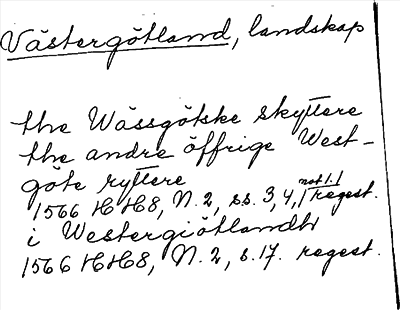 Västergötland, landskap
the Wässgötske skyttere
the andre öffrige West-
göte ryttere
1566 HH8, N. 2, ss. 3, 4, not 1. regest.
i Westergiötlandh
1566 HH8, N. 2, s. 17. regest.